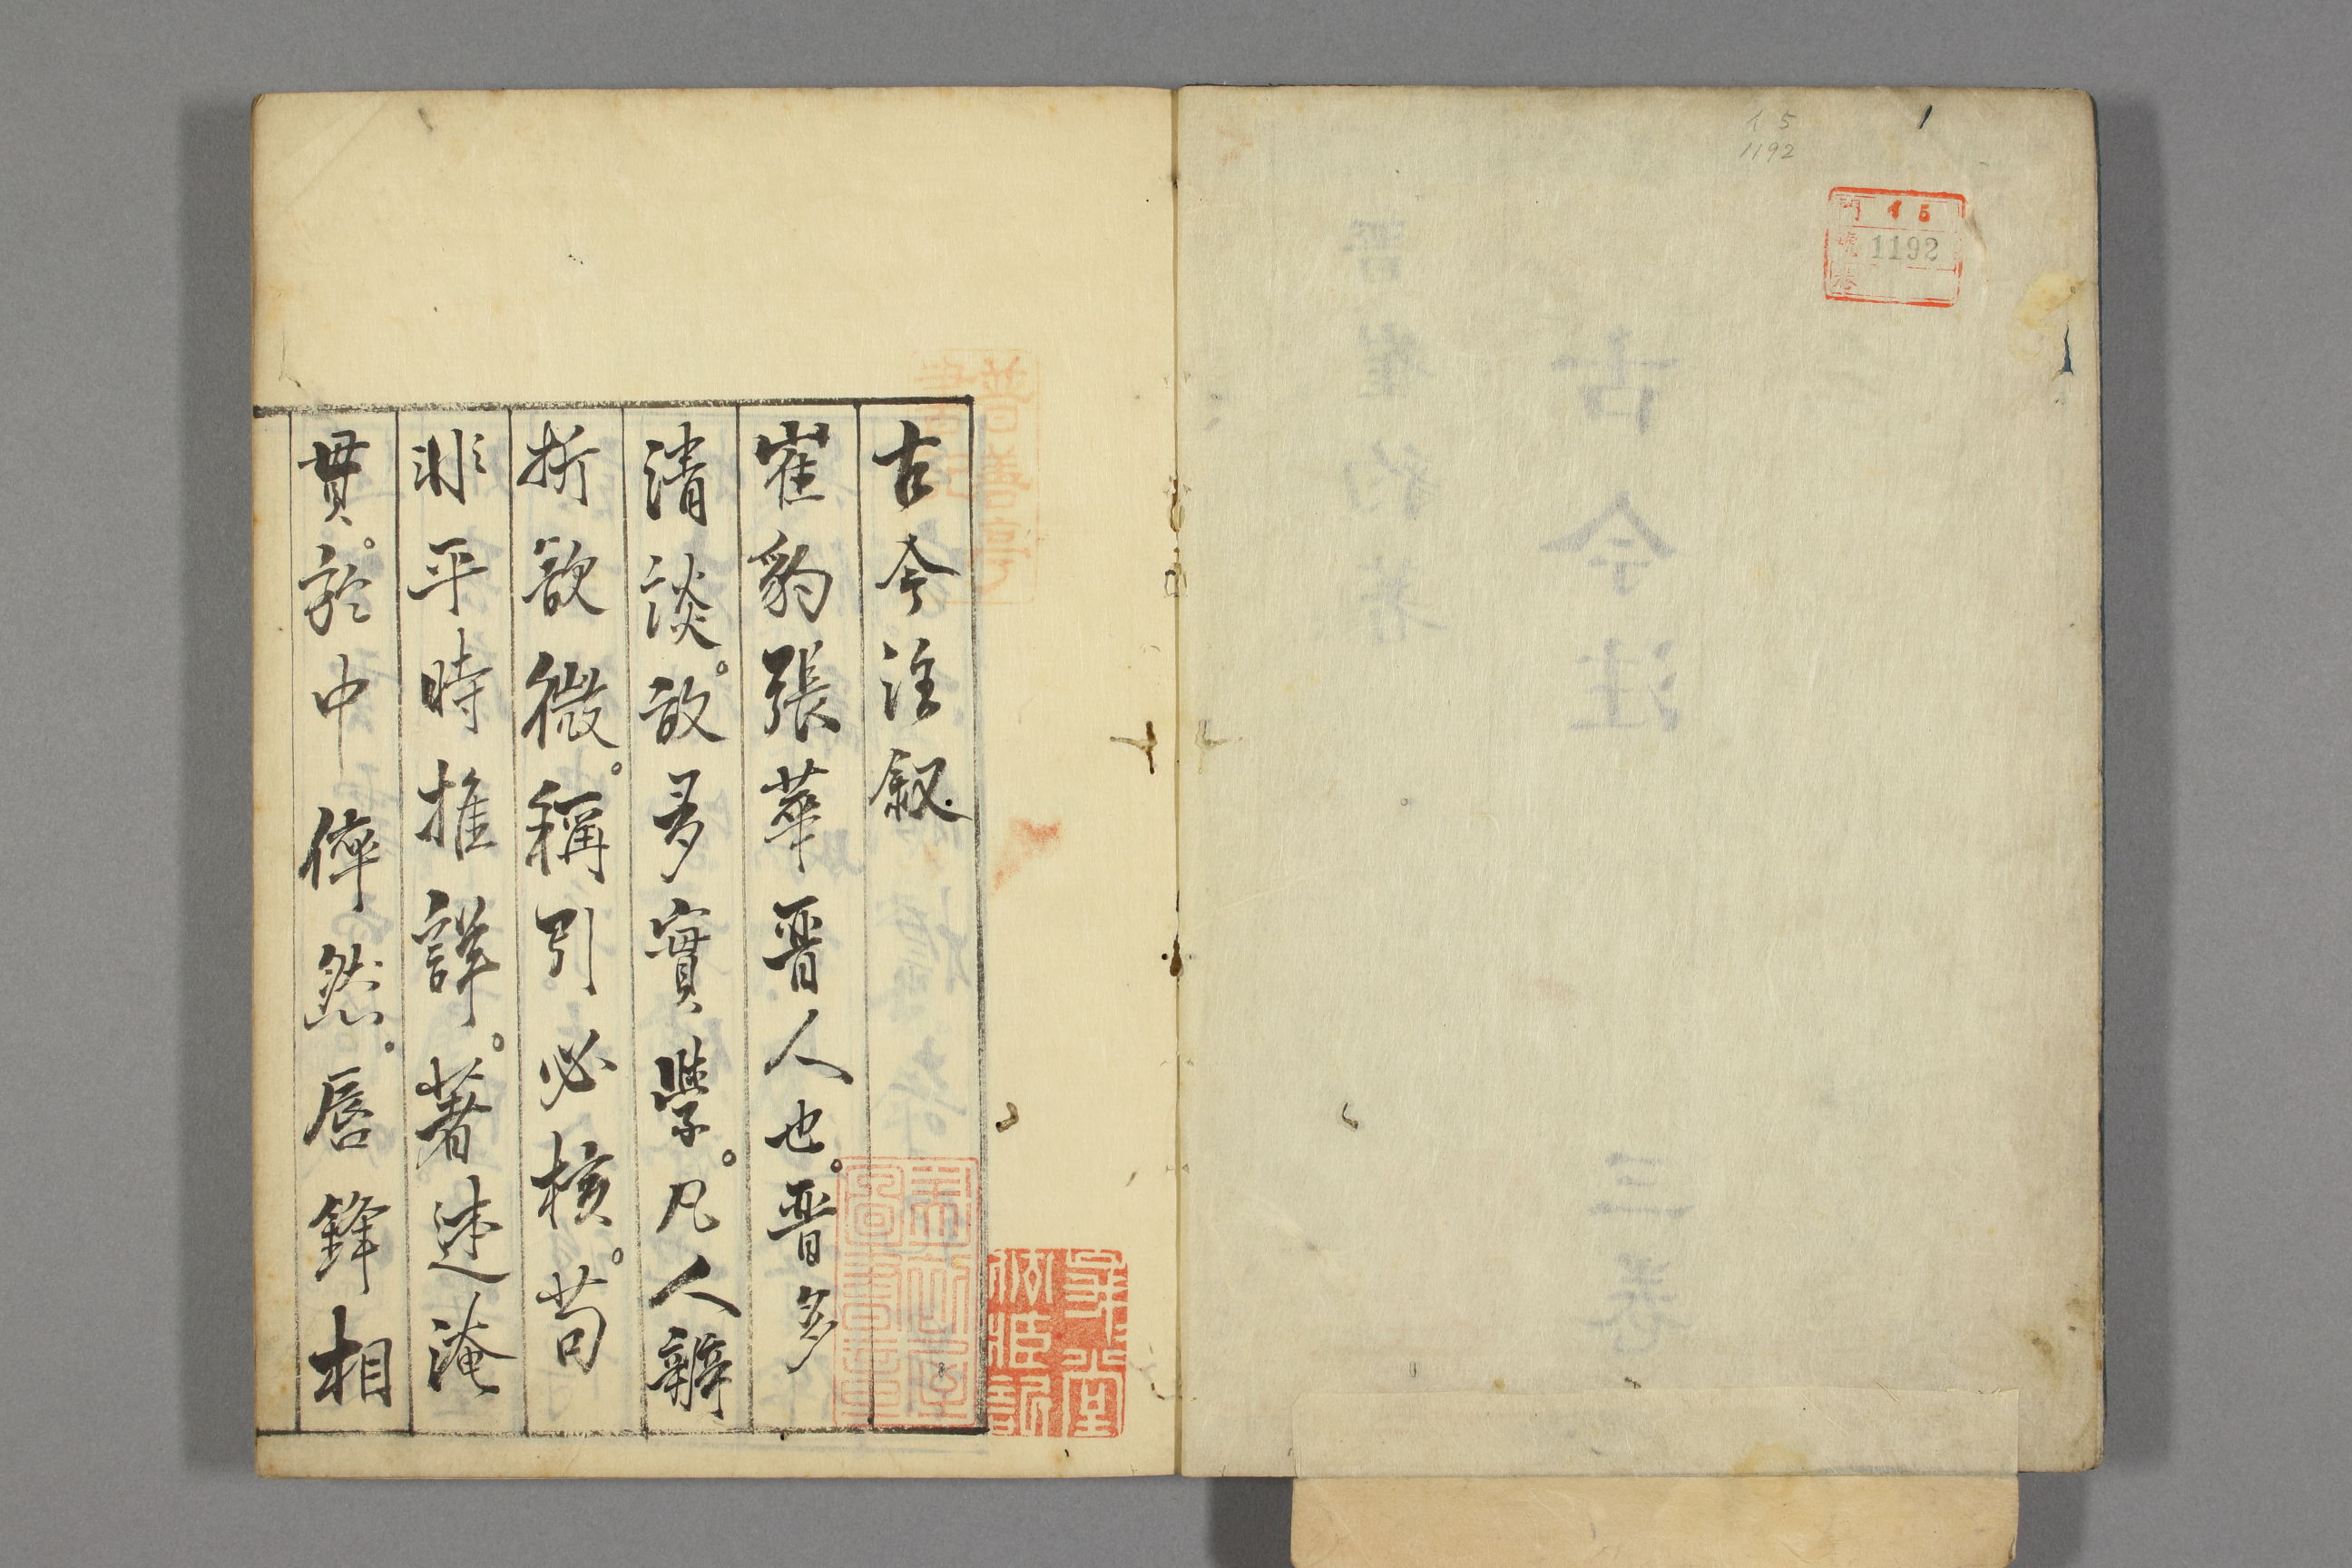 イ 5
1192
門 イ 5
號 1192
卷
古今注
三卷
晋崔豹著
古今注叙
崔豹張華晋人也。晋多
清談。故多實學。凡人辯
折欲微。稱引必核。苟
非平時推詳。著述淹
貫。於中偉然。唇鋒相